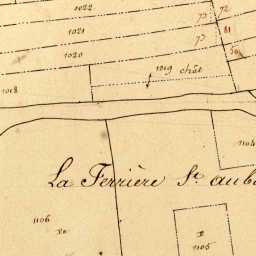 1022
73 72
1021
81
73
50
1020
1019 chât
1018
1104
La Ferrière St. aub
1106
1105